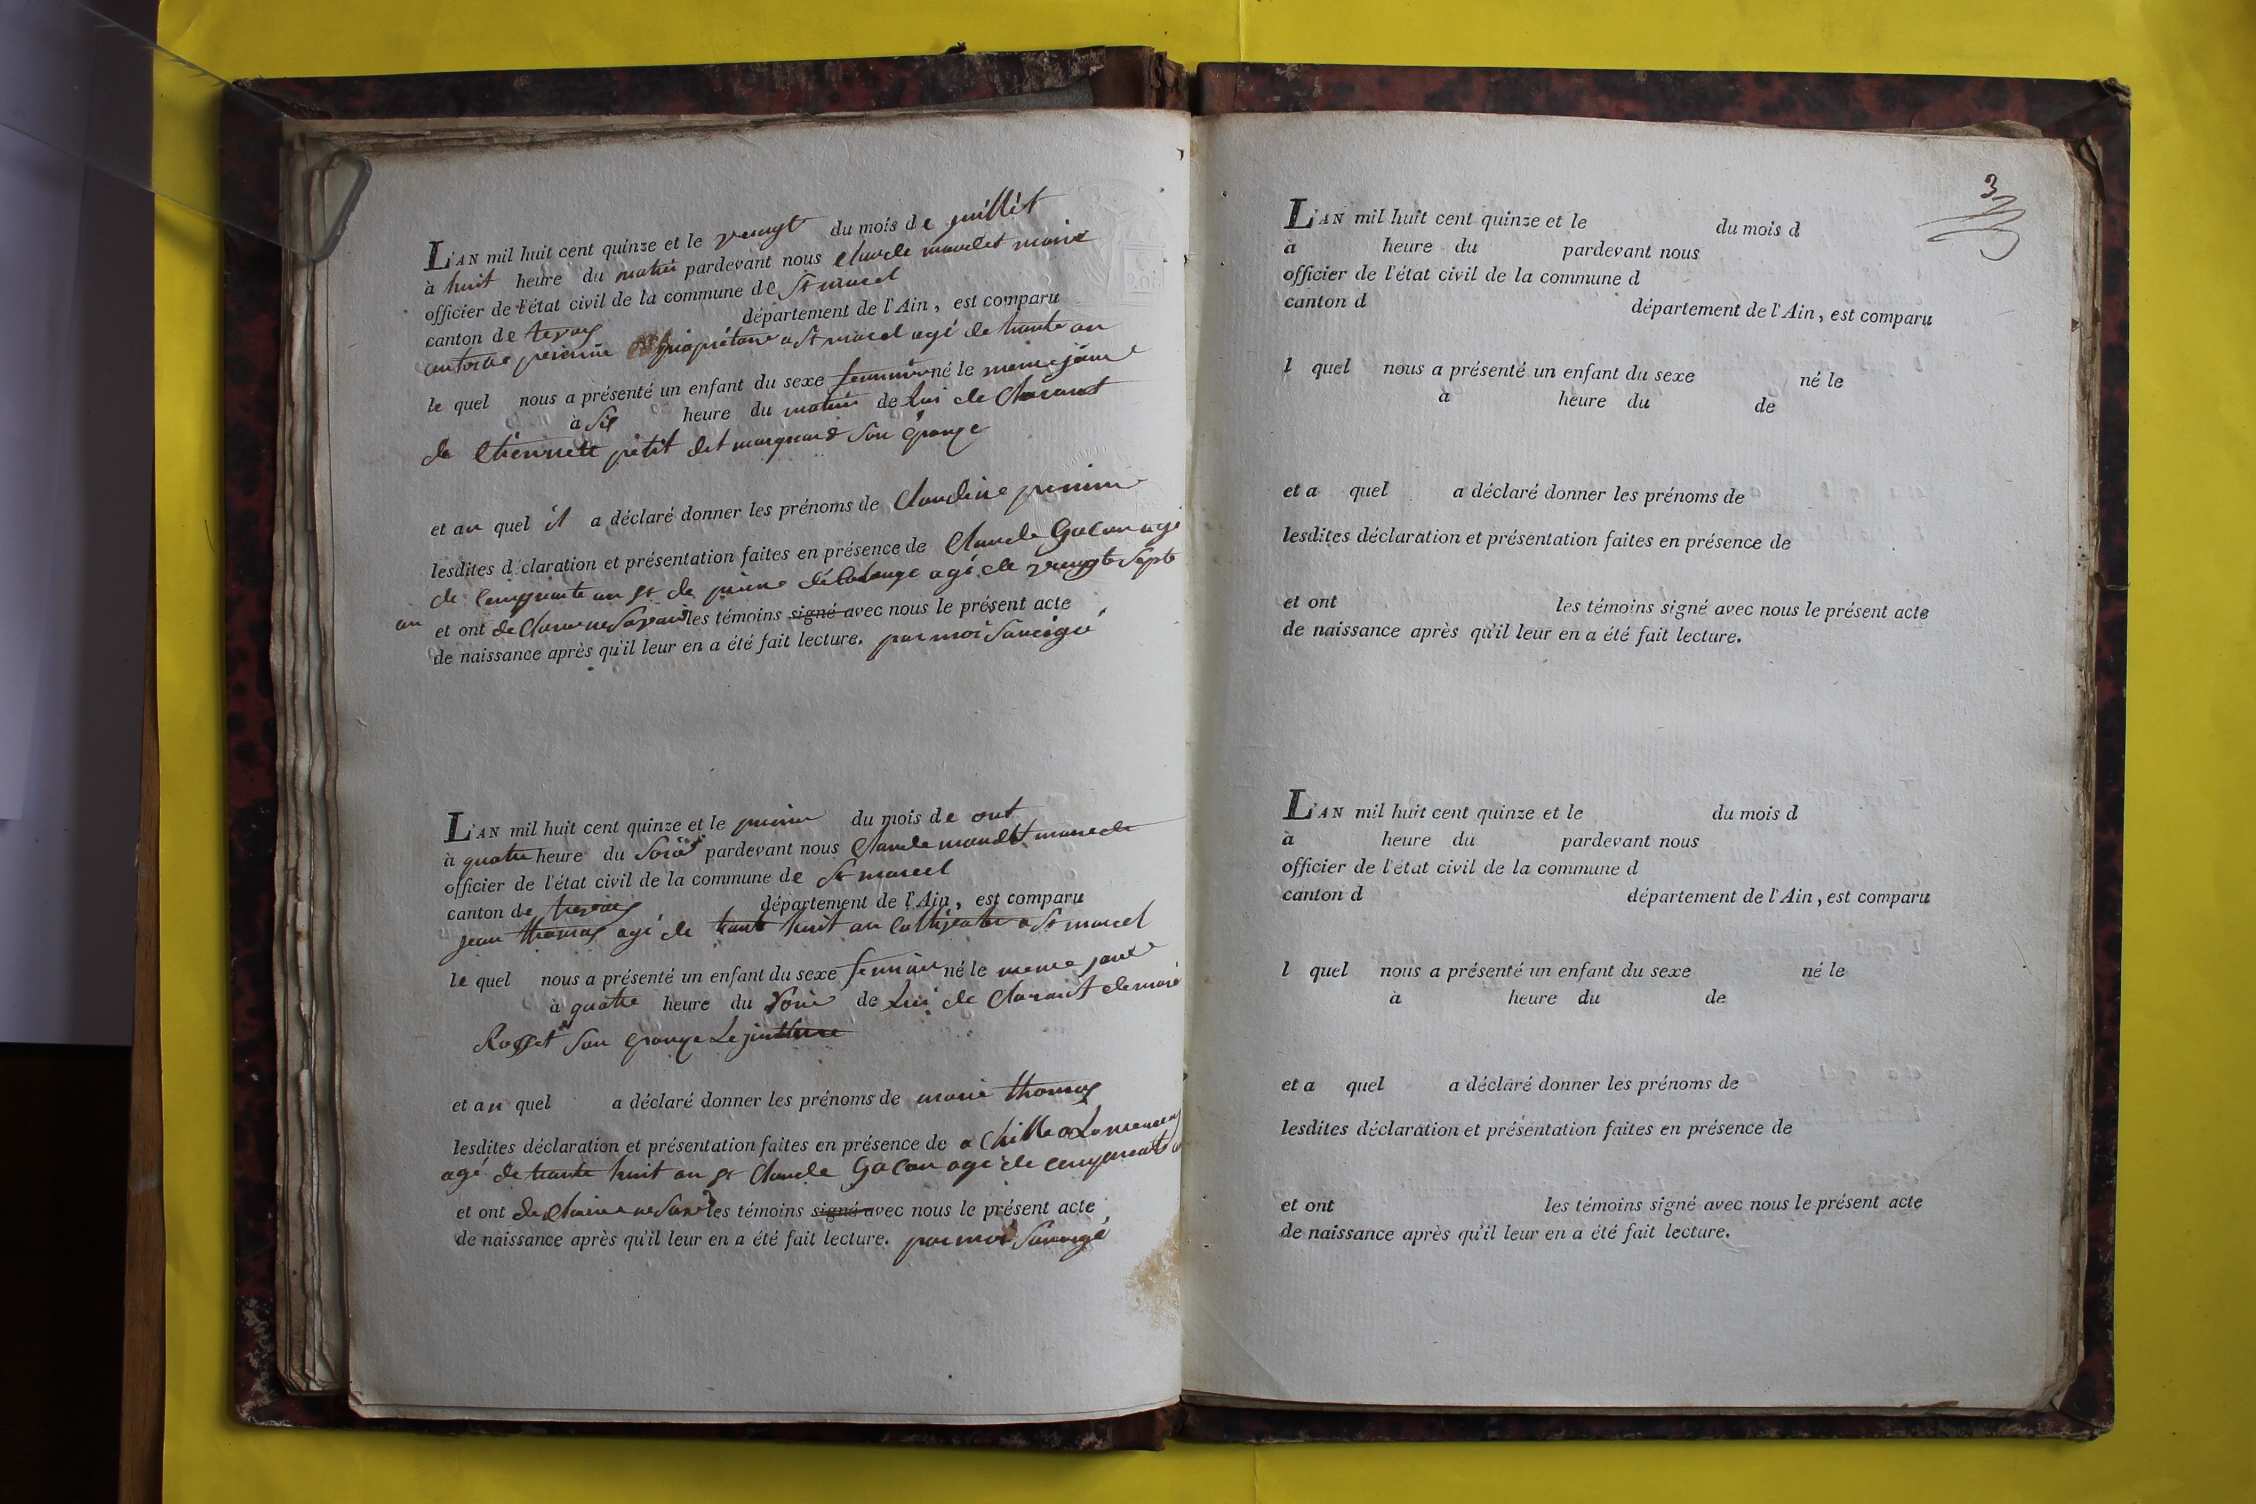 L'AN mil huit cent quinze et le vengt du mois de juillet
à huit heure du matin pardevant nous Claude mandet maire
officier de l'état civil de la commune de St marcel
canton de département de l'Ain, est comparu
propriétaire a St marcel agé de trante an
le quel nous a présenté un enfant du sexe feminin né le meme jour
à six heure du matin de lui de
de petit dit son épouge
et au quel il a déclaré donner les prénoms de Claudine
lesdites déclaration et présentation faites en présence de Claude Gacon agé
de cenquante an et de agé de vengt sept
an et ont les témoins signé avec nous le présent acte
de naissance après qu'il leur en a été fait lecture. par moi
L'AN mil huit cent quinze et le du mois de out
à quatre heure du pardevant nous Claude mandet
officier de l'état civil de la commune de St marcel
canton de département de l'Ain, est comparu
jean thomas agé de trante huit an a St marcel
le quel nous a présenté un enfant du sexe né le meme
à quatre heure du de lui de
Rosset son épouge
et au quel a déclaré donner les prénoms de marie thomas
lesdites déclaration et présentation faites en présence de
agé de trante huit an et Claude Gacon agé de
et ont les témoins signé avec nous le présent acte
de naissance après qu'il leur en a été fait lecture. par moi
3
L'AN mil huit cent quinze et le du mois d
à heure du pardevant nous
officier de l'état civil de la commune d
canton d département de l'Ain, est comparu
l quel nous a présenté un enfant du sexe né le
à heure du de
et a quel a déclaré donner les prénoms de
lesdites déclaration et présentation faites en présence de
et ont les témoins signé avec nous le présent acte
de naissance après qu'il leur en a été fait lecture.
L'AN mil huit cent quinze et le du mois d
à heure du pardevant nous
officier de l'état civil de la commune d
canton d département de l'Ain, est comparu
l quel nous a présenté un enfant du sexe né le
à heure du de
et a quel a déclaré donner les prénoms de
lesdites déclaration et présentation faites en présence de
et ont les témoins signé avec nous le présent acte
de naissance après qu'il leur en a été fait lecture.